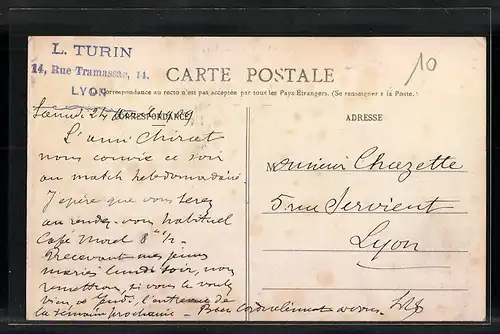 L. TURIN
14, Rue Tramassac, 14.
LYON
10
CARTE POSTALE
Correspondance au recto n'est pas acceptée par tous les Pays Etrangers. (Se renseigner à la Poste.)
CORRESPONDANCE
ADRESSE
Samedi 24
L'ami Chirat
nous convie ce soir
au match hebdomadaire.
J'espère que vous serez
au rendez-vous habituel
Café Morel 8h 1/2
Recevant mes jeunes
mariés lundi soir, nous
remettrons, si vous le voulez
bien, à jeudi, l'entrevue de
la semaine prochaine - Bien cordialement à vous.
Monsieur Chazette
5 rue Servient
Lyon